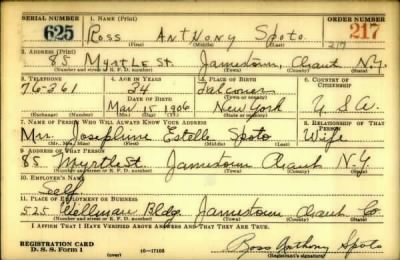 SERIAL NUMBER 1. NAME (Print) ORDER NUMBER
625 Ross Anthony Spoto 217
(First) (Middle) (Last) 217
2. ADDRESS (Print)
85 Myrtle St. Jamestown, Chaut N.Y.
(Number and street or R. F. D. number) (Town) (County) (State)
3. TELEPHONE 4. AGE IN YEARS 5. PLACE OF BIRTH 6. COUNTRY OF CITIZENSHIP
76-261 34 Falconer
DATE OF BIRTH (Town or county)
Mar. 15 1906 New York U.S.A.
(Exchange) (Number) (Mo.) (Day) (Yr.) (State or country)
7. NAME OF PERSON WHO WILL ALWAYS KNOW YOUR ADDRESS 8. RELATIONSHIP OF THAT PERSON
Mrs. Josephine Estelle Spoto Wife
(Mr., Mrs., Miss) (First) (Middle) (Last)
9. ADDRESS OF THAT PERSON
85 Myrtle St. Jamestown Chaut N.Y
(Number and street or R. F. D. number) (Town) (County) (State)
10. EMPLOYER'S NAME
Self
11. PLACE OF EMPLOYMENT OR BUSINESS
525 Wellman Bldg. Jamestown Chaut Co
(Number and street or R. F. D. number) (Town) (County) (State)
I AFFIRM THAT I HAVE VERIFIED ABOVE ANSWERS AND THAT THEY ARE TRUE.
REGISTRATION CARD
D. S. S. Form 1 (over) Ross Anthony Spoto
(Registrant's signature)